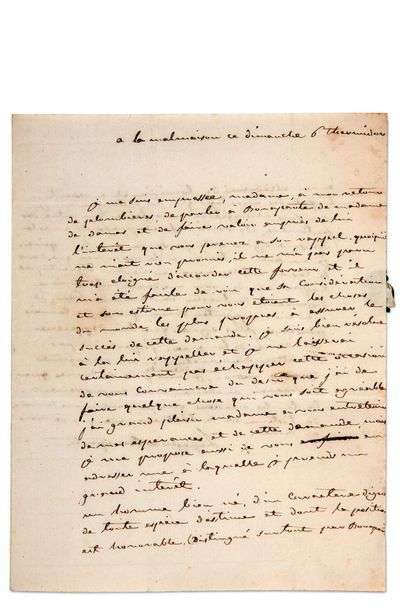 a la malmaison ce dimanche 6 Thermidor
je me suis empressée, madame, à mon retour
de plombieres, de parler a Bonaparte de madame
de damas et de faire valoir auprès de lui
l'interêt que vous prenez a son rappel, quoiqu'il
ne m'ait rien promis, il ne m'a pas paru
trop éloigné d'accorder cette faveur et il
m'a été facile de voir que sa consideration
et son estime pour vous étoient les choses
du monde les plus propres a assurer le
succès de cette demande. je suis bien resolue
à la lui rappeller et je ne laisserai
certainement pas echapper cette occasion
de vous convaincre du desir que j'ai de
faire quelque chose qui vous soit agreable
j'ai grand plaisir madame a vous entretenir
de mes esperances et de cette demande, mais
je me propose aussi de vous en
adresser une à laquelle je prends un
grand interêt.
un homme bien né, d'un caractere digne
de toute espece d'estime et dont la position
est honorable, distingué surtout par